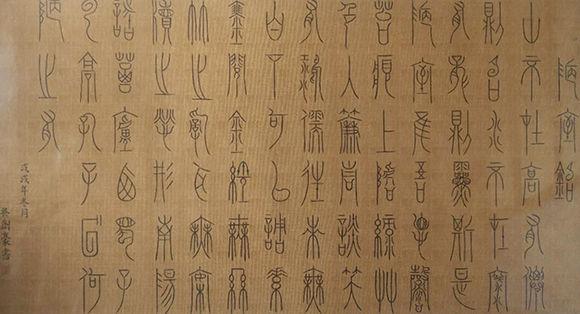 陋室銘
山不在高有僊
則名水不在深
有龍則靈斯是
陋室惟吾德馨
苔痕上階綠艸
色入簾青談笑
有鴻儒往來無
白丁可以調素
琴閱金經無絲
竹之亂耳無案
牘之勞形南陽
諸葛廬西蜀子
雲亭孔子曰何
陋之有
戊戌年冬月
篆書